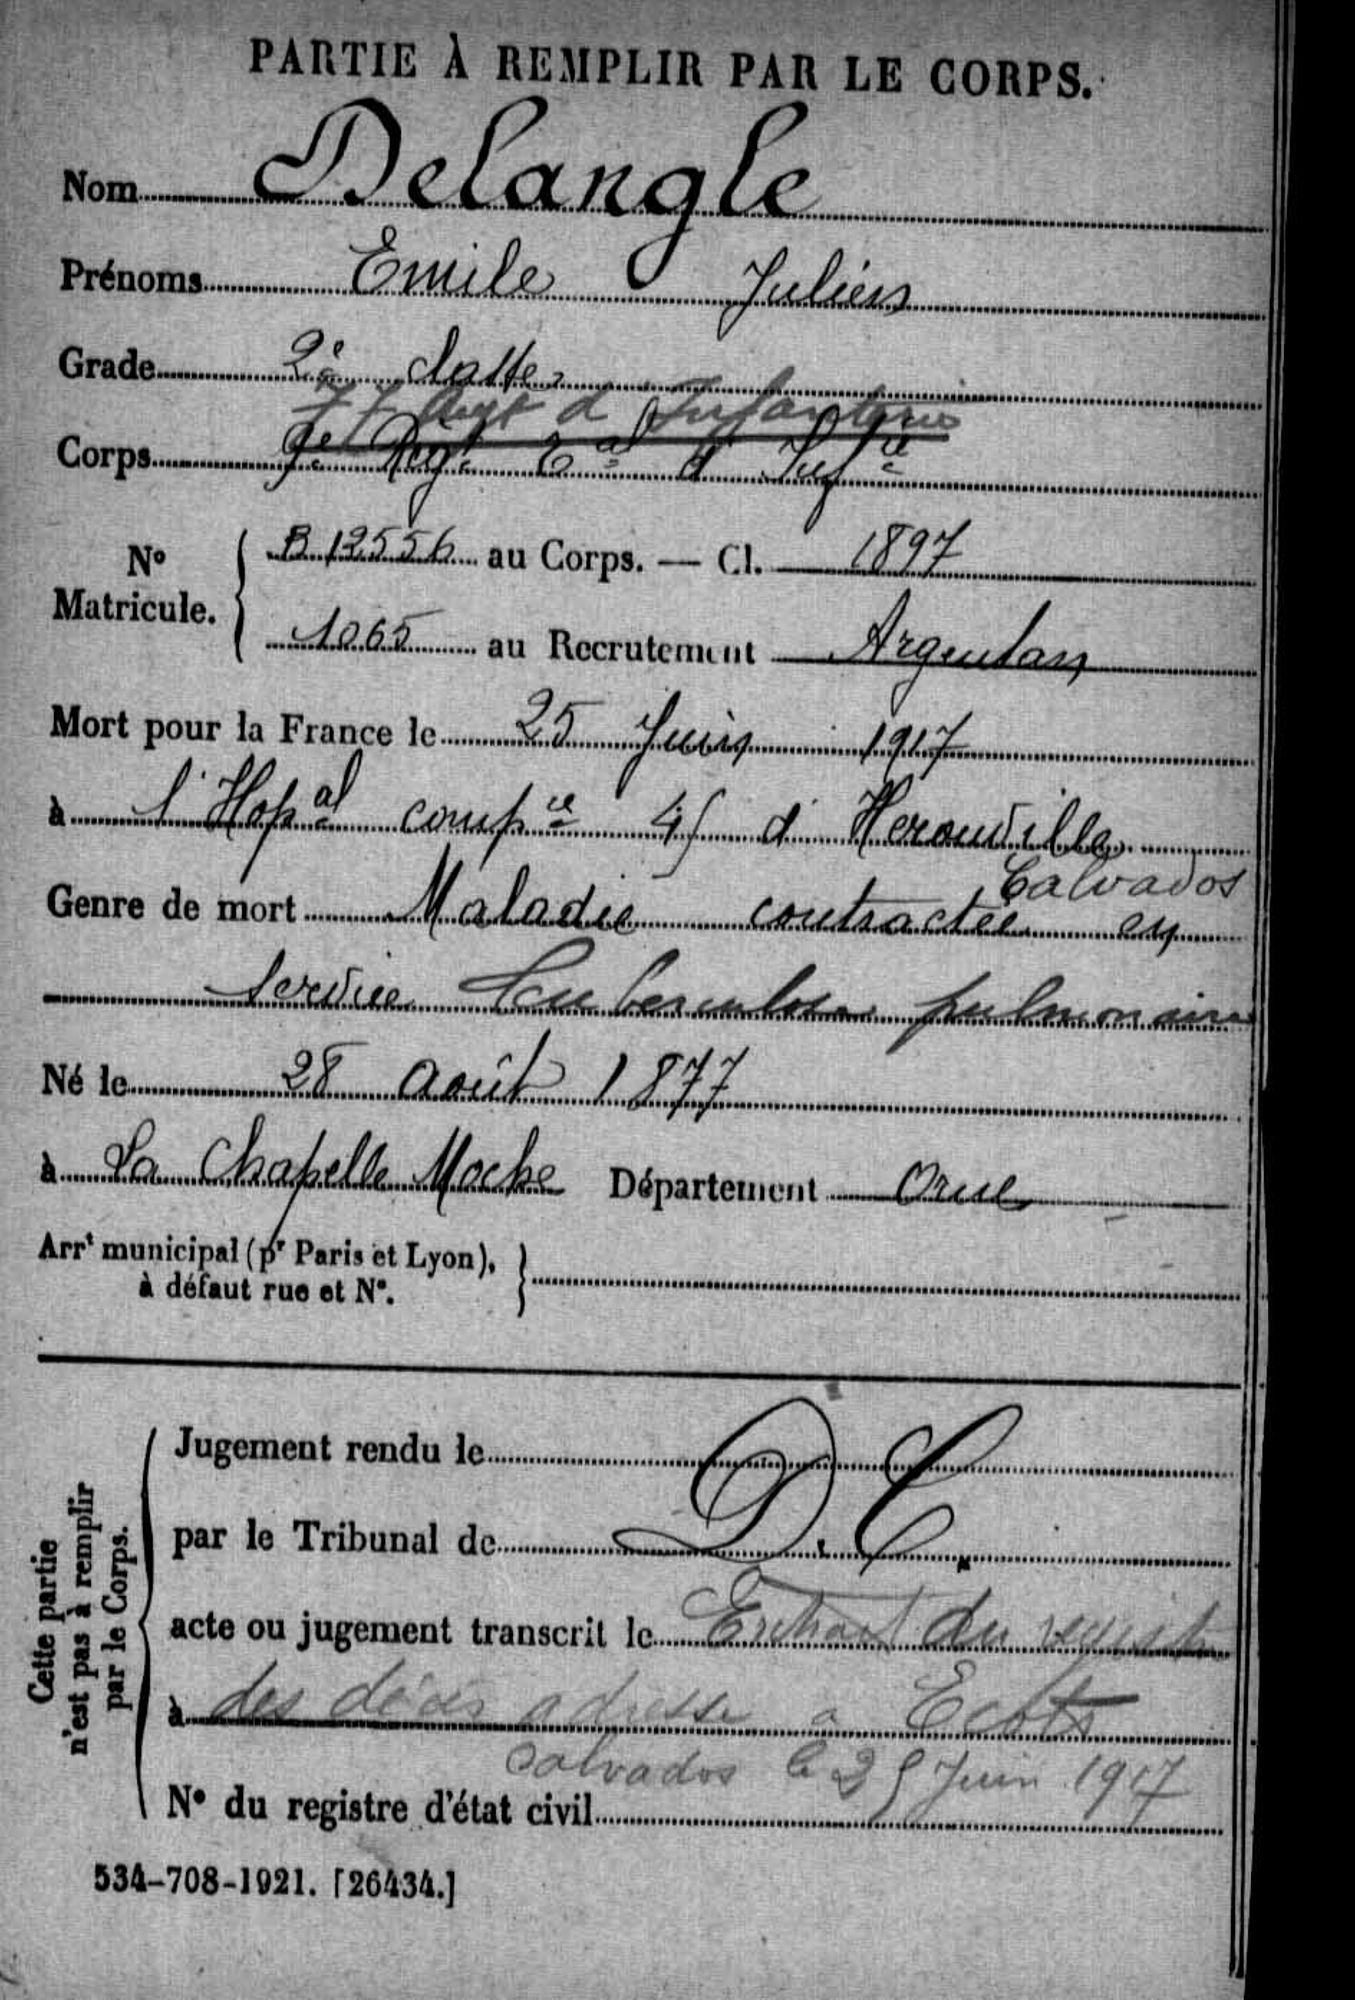 PARTIE À REMPLIR PAR LE CORPS.
Nom Delangle
Prénoms Emile Julien
Grade 2e classe
77 Regt d Infanterie
Corps Regt d' Infie
No Matricule. B 12556 au Corps. — Cl. 1897
1065 au Recrutement Argentan
Mort pour la France le 25 Juin 1917
à l'Hopal compre d'Herouville
Calvados
Genre de mort Maladie contractée en
service Tuberculose pulmonaire
Né le 28 août 1877
à La Chapelle Moche Département Orne
Arrt municipal (pr Paris et Lyon), à défaut rue et No.
Cette partie n'est pas à remplir par le Corps.
Jugement rendu le
D. C.
par le Tribunal de
acte ou jugement transcrit le Extrait du registre
à des décès adressé a Ecots
Calvados le 25 Juin 1917
No du registre d'état civil
534-708-1921. [26434.]